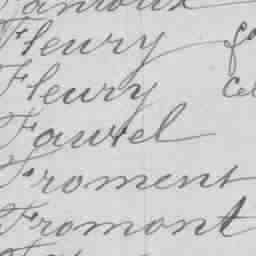 Fleury
Fleury Cel
Fauvel
Froment
Fromont